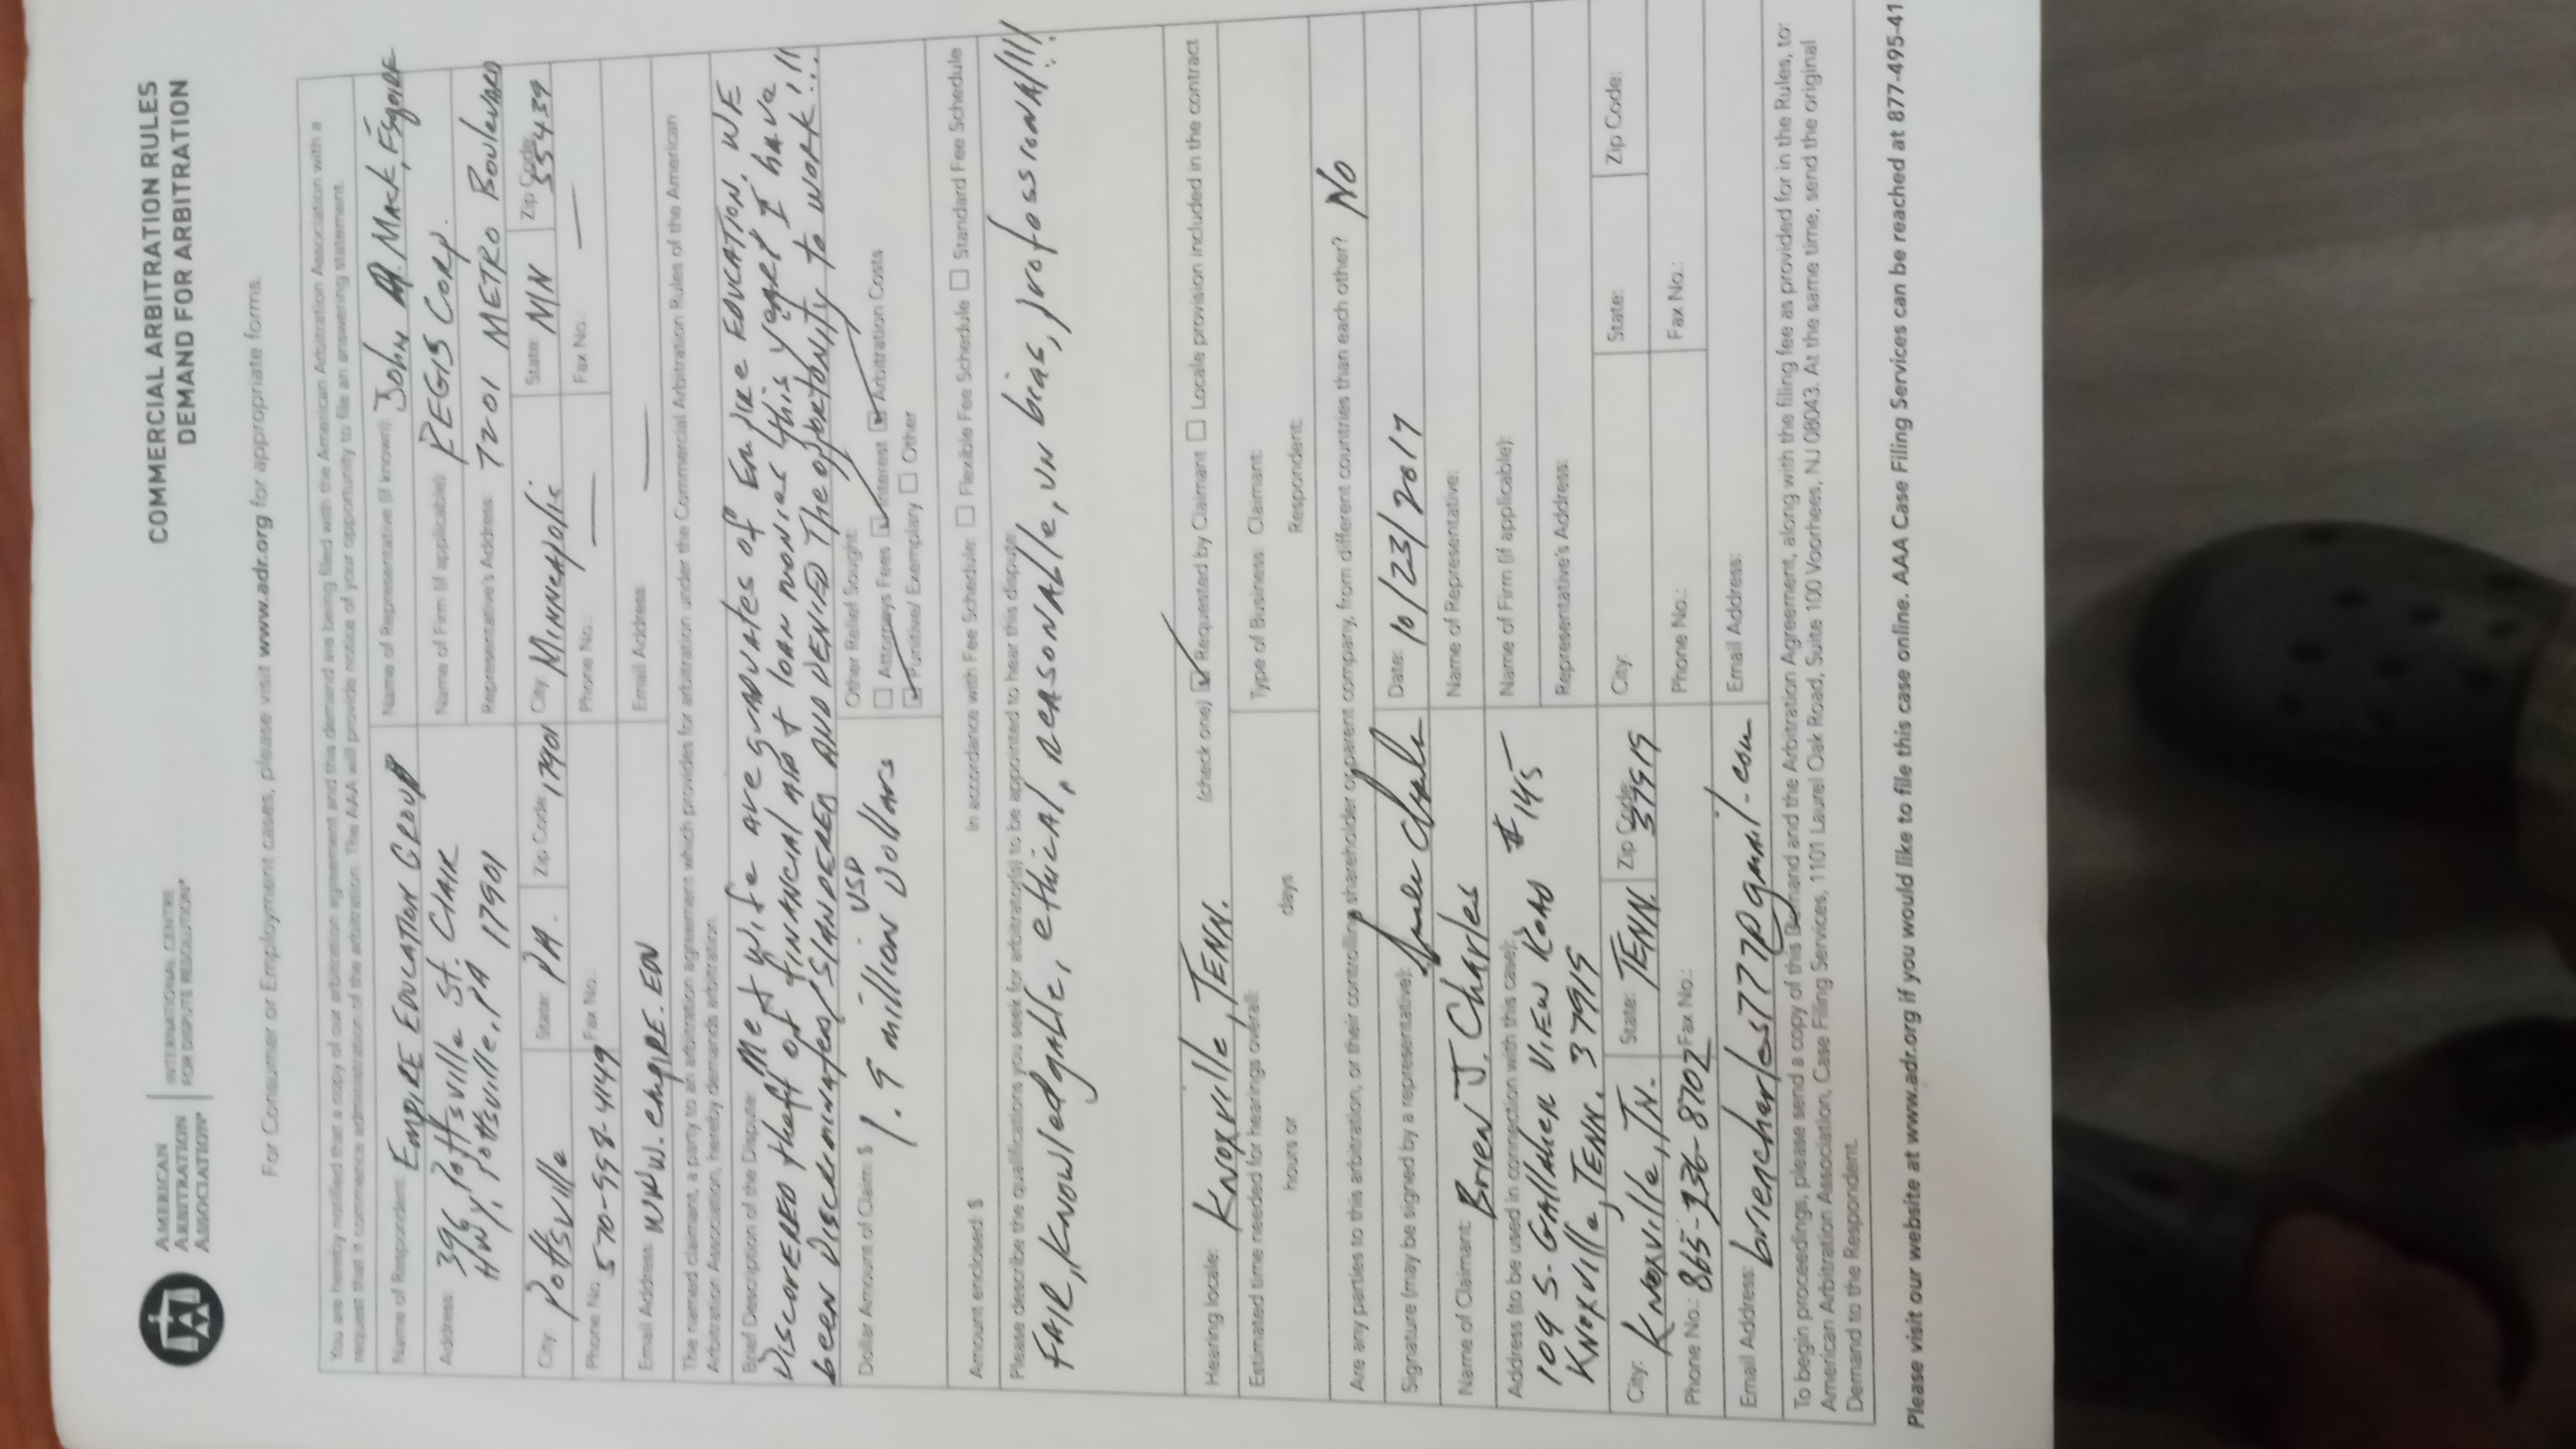 AMERICAN
ARBITRATION
ASSOCIATION®
INTERNATIONAL CENTRE
FOR DISPUTE RESOLUTION®
COMMERCIAL ARBITRATION RULES
DEMAND FOR ARBITRATION
For Consumer or Employment cases, please visit www.adr.org for appropriate forms.
You are hereby notified that a copy of our arbitration agreement and this demand are being filed with the American Arbitration Association with a
request that it commence administration of the arbitration. The AAA will provide notice of your opportunity to file an answering statement.
Name of Respondent: EMPIRE EDUCATION GROUP
Name of Representative (if known): John Mack, Esquire
Address: 396 Pottsville St. CLAIR
Hwy, Pottsville, PA 17901
Name of Firm (if applicable): REGIS Corp.
Representative's Address: 7201 METRO Boulevard
City: Pottsville State: PA. Zip Code: 17901
City: Minneapolis State: MN Zip Code: 55439
Phone No.: 570-998-4149 Fax No.:
Phone No.: — Fax No.: —
Email Address: WWW.empire.EDU
Email Address: —
The named claimant, a party to an arbitration agreement which provides for arbitration under the Commercial Arbitration Rules of the American
Arbitration Association, hereby demands arbitration.
Brief Description of the Dispute: Me & wife are graduates of Empire EDUCATION. WE
DISCOVERED theft of FINANCIAL AID & loan monies this year! I have
been DISCRIMINATED/SLANDERED AND DENIED The opportunity to WORK!!!...
Dollar Amount of Claim: $ 1.9 million USD Dollars
Other Relief Sought:
Attorneys Fees Interest Arbitration Costs
Punitive/ Exemplary Other
Amount enclosed: $
In accordance with Fee Schedule: Flexible Fee Schedule Standard Fee Schedule
Please describe the qualifications you seek for arbitrator(s) to be appointed to hear this dispute:
FAIR, Knowledgable, ethical, REASONABLE, UN bias, professional!!!!
Hearing locale: Knoxville, TENN.
(check one) Requested by Claimant Locale provision included in the contract
Estimated time needed for hearings overall:
hours or days
Type of Business: Claimant:
Respondent:
Are any parties to this arbitration, or their controlling shareholder or parent company, from different countries than each other? No
Signature (may be signed by a representative):
Date: 10/23/2017
Name of Claimant: Brien J. Charles
Name of Representative:
Address (to be used in connection with this case):
109 S. GAllAher VIEW ROAD #145
Knoxville, TENN. 37919
Name of Firm (if applicable):
Representative's Address:
City: Knoxville, TN. State: TENN. Zip Code: 37919
City: State: Zip Code:
Phone No.: 865-236-8702 Fax No.:
Phone No.: Fax No.:
Email Address: briencharles777@gmail.com
Email Address:
To begin proceedings, please send a copy of this Demand and the Arbitration Agreement, along with the filing fee as provided for in the Rules, to:
American Arbitration Association, Case Filing Services, 1101 Laurel Oak Road, Suite 100 Voorhees, NJ 08043. At the same time, send the original
Demand to the Respondent.
Please visit our website at www.adr.org if you would like to file this case online. AAA Case Filing Services can be reached at 877-495-41